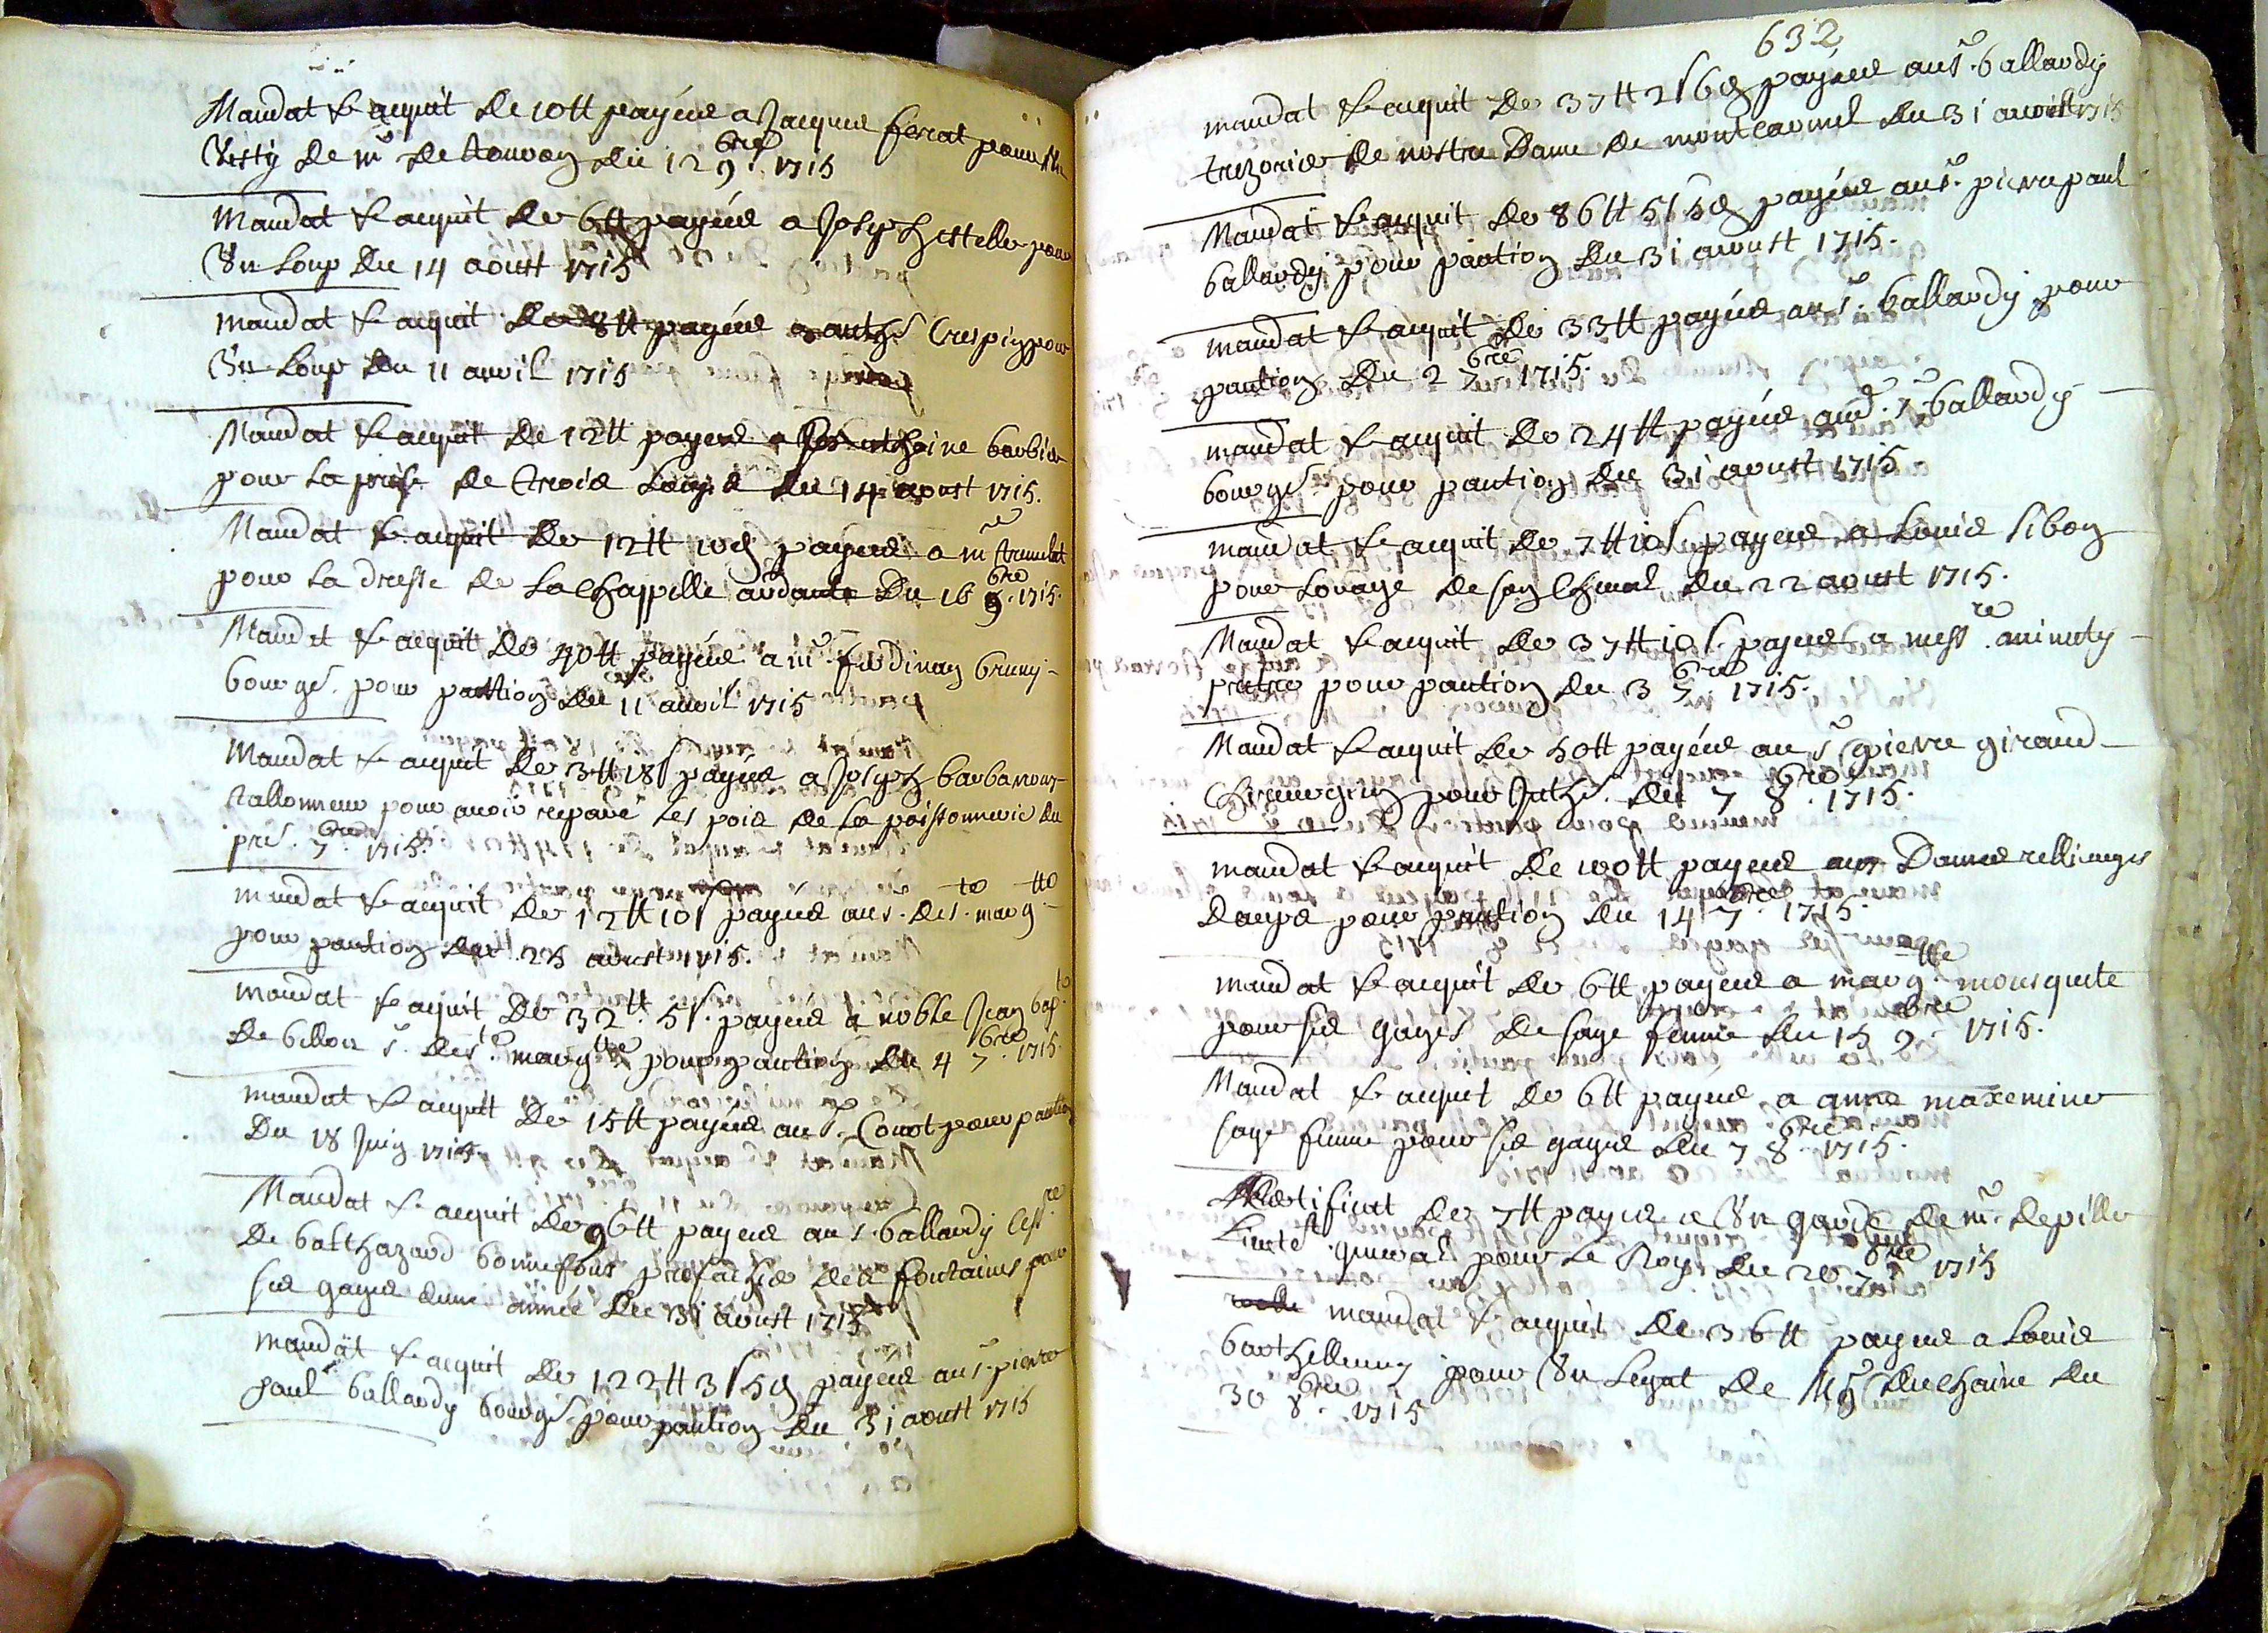 Mandat & acquit de 10tt payées a Jacques ferrat pour
de mr de du 12 9bre 1715
Mandat & acquit de 6tt payées a Joseph estelle pour
Un Loup du 14 aoust 1715
mandat & acquit de 8tt payées a anthe Crespin pour
Un Loup du 11 avril 1715
Mandat & acquit de 12tt payees a barbier
pour la prise de trois Loups du 14 aoust 1715.
Mandat & acquit de 12tt 10d payees a mre
pour la dresse de la Chappelle ardante du 16 9bre 1715.
Mandat & acquit de 40tt payées a mr ferdinan bruny
bourgs. pour pantion du 11 avril 1715
Mandat & acquit de 3tt 18s payées a Joseph barbaroux
pour avoir reparé les poids de la poissonnerie du
pre. 7bre 1715.
mandat & acquit de 12tt 10s payees au s. de ste margtte
pour pantion du 25 aoust 1715.
mandat & acquit de 32tt. 5s. payées a noble Jean bapte
de billon s. de ste margtte pour pantion du 4 7bre 1715.
mandat & acquit de 15tt payées au s. Couot pour pantion
du 18 Juin 1715
Mandat & acquit de 96tt payees au s. ballardy cessre
de balthazard bonnefous prefachie des fontaines pour
ses gages dune année du 31 aoust 1715
mandat & acquit de 122tt 3s 5d payées au s. pierre
paul ballardy bourgs. pour pantion du 31 aoust 1715
632
mandat & acquit de 37tt 2s 6d payées au sr. ballardy
trezorier de nostre Dame de montcarmel du 31 aoust 1715
Mandat & acquit de 86tt 5s 5d payées au sr. pierre paul
ballardy pour pantion du 31 aoust 1715.
mandat & acquit de 33tt payées au sr. ballardy pour
pantion du 2 7bre 1715.
mandat & acquit de 24tt payées aud. sr. ballardy
bourgs. pour pantion du 31 aoust 1715.
mandat & acquit de 7tt 10s payees a Louis sibon
pour Louage de son Cheval du 22 aoust 1715.
Mandat & acquit de 37tt 10s. payees a messre. minuty
pretre pour pantion du 3 7bre 1715.
Mandat & acquit de 50tt payées au sr pierre giraud
Chirurgien pour du 7 8bre. 1715.
mandat & acquit de 100tt payees aux Dames rellieuges
Daups pour pantion du 14 7bre 1715.
mandat & acquit de 6tt payees a margtte mousquete
pour ses gages de sage femme du 15 9bre 1715.
Mandat & acquit de 6tt payees a anne maxemine
sage femme pour ses gages du 7 8bre 1715.
Certificat de 7tt payés a Un garde de mr. depille
Lieutet general pour le Roy du 20 7bre 1715
mandat & acquit de 36tt payees a Louis
barthellemy pour Un Legat de Duchaine du
30 8bre 1715